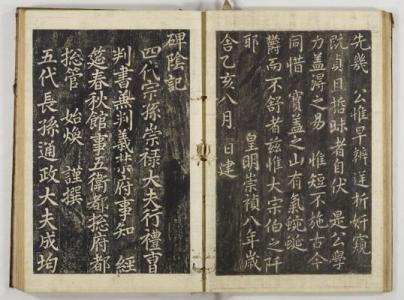 先幾 公惟早辨逆折奸窺
旣貞且哲 者自伏 是公學
力盖淂之易 惟短不施古今
同惜 寶盖之山有氣蜿蜒
欝而不舒者玆惟大宗伯之阡
耶 皇明崇禎八年歲
舍乙亥八月 日建
碑陰記
四代宗孫崇祿大夫行禮曺
判書兼判義禁府事知 經
筵春秋館事五衛都摠府都
摠管 始煥 謹撰
五代長孫通政大夫成均